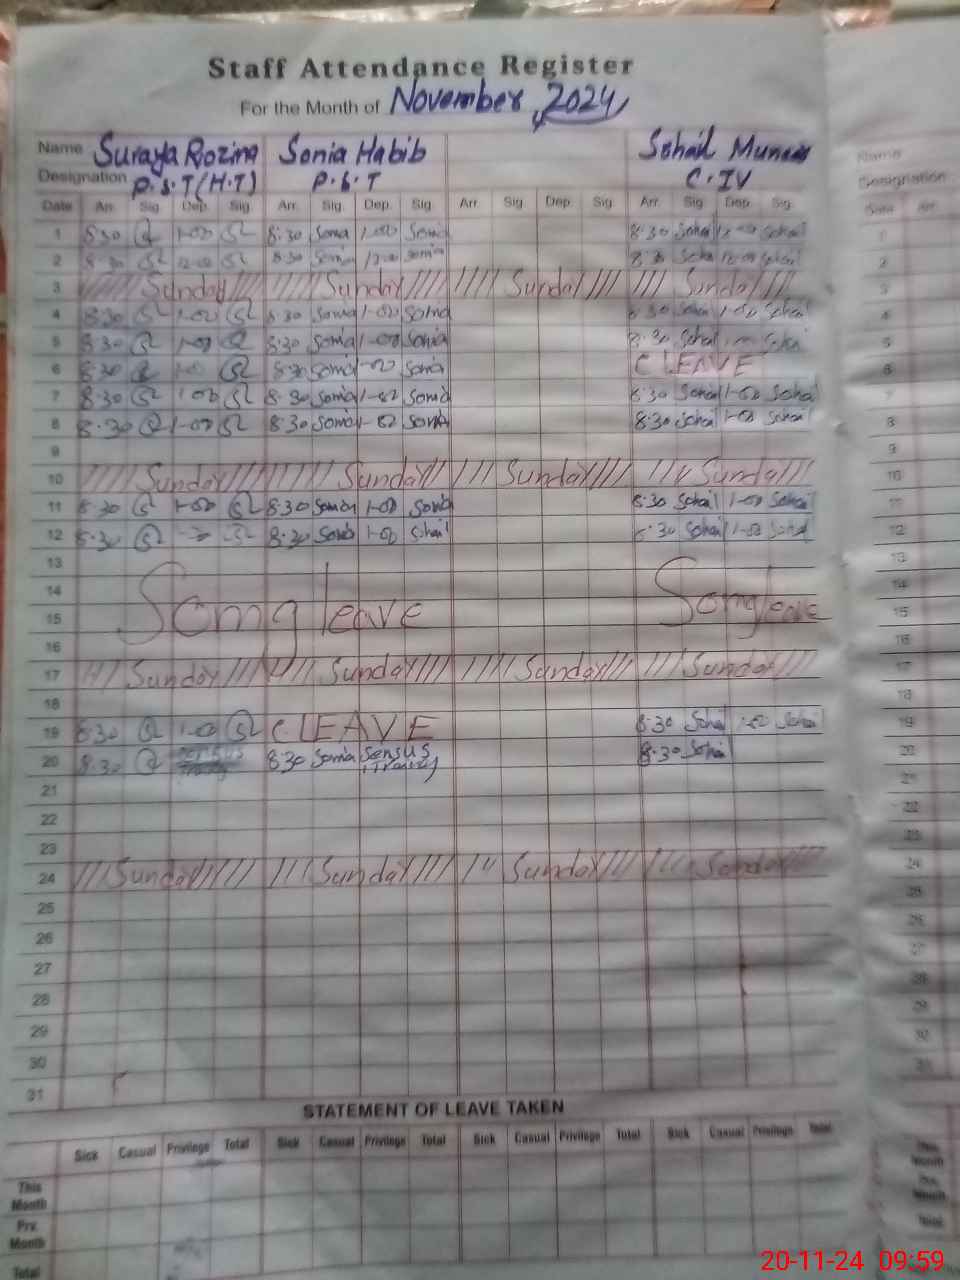 Staff Attendance Register
For the Month of November, 2024
Name Suraya Rozina Sonia Habib Sohail
Designation P.S.T (H.T) P.S.T C.IV
Date Arr. Sig. Dep. Sig. Arr. Sig. Dep. Sig. Arr. Sig. Dep. Sig. Arr. Sig. Dep. Sig.
1 8:30 1-00 8:30 Sonia 1-00 Sonia 8:30 Sohail 12-00 Sohail
2 8:30 12-00 8:30 Sonia 12-00 Sonia 8:30 Sohail 12-00 Sohail
3 Sunday Sunday Sunday Sunday
4 8:30 1-00 8:30 Sonia 1-00 Sonia 8:30 Sohail 1-00 Sohail
5 8:30 1-00 8:30 Sonia 1-00 Sonia 8:30 Sohail Sohail
6 8:30 8:30 Sonia 1-00 Sonia C LEAVE
7 8:30 1-00 8:30 Sonia 1-00 Sonia 8:30 Sohail 1-00 Sohail
8 8:30 1-00 8:30 Sonia 1-00 Sonia 8:30 Sohail 1-00 Sohail
9
10 Sunday Sunday Sunday Sunday
11 8:30 1-00 8:30 Sonia 1-00 Sonia 8:30 Sohail 1-00 Sohail
12 8:30 8:30 Sonia 1-00 Sohail 8:30 Sohail 1-00 Sohail
13
14
15 Somg leave Somg leave
16
17 Sunday Sunday Sunday Sunday
18
19 8:30 1-00 C LEAVE 8:30 Sohail 1-00 Sohail
20 8:30 8:30 Sonia Sensus 8:30 Sohail
21
22
23
24 Sunday Sunday Sunday Sunday
25
26
27
28
29
30
31
STATEMENT OF LEAVE TAKEN
Sick Casual Privilege Total Sick Casual Privilege Total Sick Casual Privilege Total Sick Casual Privilege Total
This Month
Prv. Month
Total
20-11-24 09:59